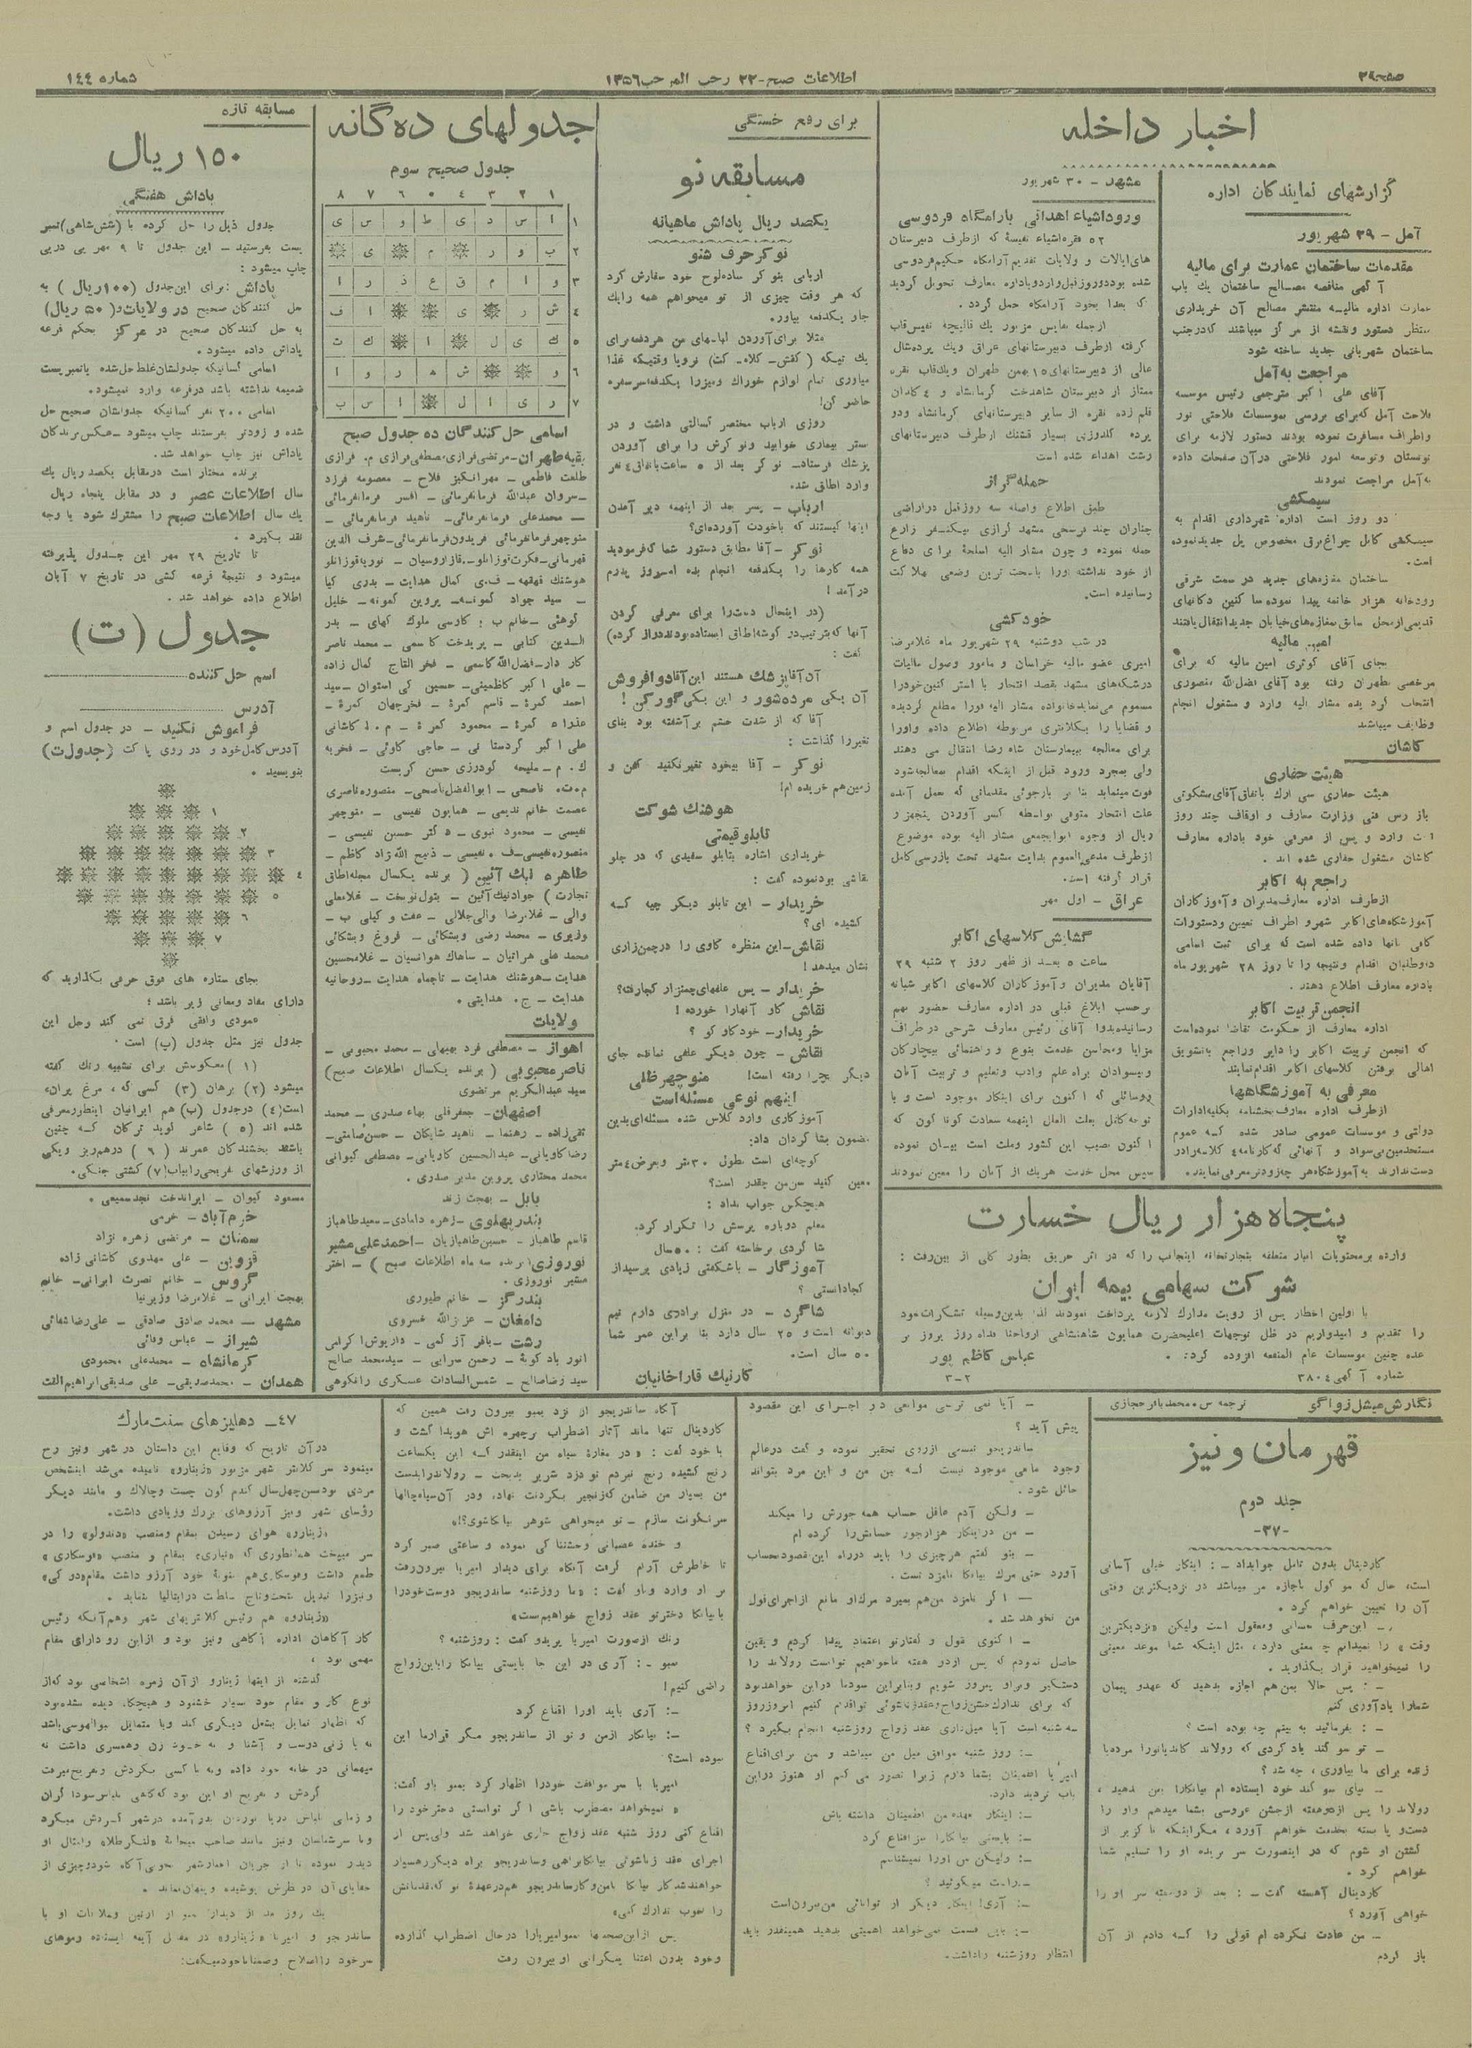 صفحه ۳۹
اطلاعات صبح - ۲۲ رجب المرجب ۱۳۵۶
شماره ۱۴۴
اخبار داخله
گزارشهای نمایندگان اداره
آمل - ۲۹ شهریور
مقدمات ساختمان عمارت برای مالیه
آگهی مناقصه مصالح ساختمان یك باب
عمارت اداره مالیه منتشر مصالح آن خریداری
منتظر دستور ونقشه از مرکز میباشند که درجنب
ساختمان شهربانی جدید ساخته شود
مراجعت به آمل
آقای علی اکبر مترجمی رئیس موسسه
فلاحت آمل که برای بررسی بموسسات فلاحتی نور
واطراف مسافرت نموده بودند دستور لازمه برای
نوبستان وتوسعه امور فلاحتی درآن صفحات داده
به آمل مراجعت نمودند
سیمکشی
دو روز است اداره شهرداری اقدام به
سیمکشی کابل چراغ برق مخصوص پل جدید نموده
است.
ساختمان مغازه های جدید در سمت شرقی
رودخانه هزار خاتمه پیدا نموده ساکنین دکانهای
قدیمی ازمحل سابق بمغازه های خیابان جدید انتقال یافتند
امین مالیه
بجای آقای کوثری امین مالیه که برای
مرخصی بطهران رفته بود آقای فضل الله منصوری
انتخاب گردیده مشار الیه وارد و مشغول انجام
وظایف میباشند
کاشان
هیئت حفاری
هیئت حفاری سی ارك باتفاق آقای سشکوتی
بازرس فنی وزارت معارف و اوقاف چند روز
است وارد و پس از معرفی خود باداره معارف
کاشان مشغول حفاری شده اند.
راجع به اکابر
ازطرف اداره معارف مدیران و آموزگاران
آموزشگاه های اکابر شهر و اطراف تعیین ودستورات
کافی بآنها داده شده است که برای ثبت اسامی
داوطلبان اقدام ونتیجه را تا روز ۲۸ شهریور ماه
باداره معارف اطلاع دهند.
انجمن تربیت اکابر
اداره معارف از حکومت تقاضا نموده است
که انجمن تربیت اکابر را دایر وراجع به تشویق
اهالی برفتن کلاسهای اکابر اقدام نمایند
معرفی به آموزشگاهها
ازطرف اداره معارف بخشنامه بکلیه ادارات
دولتی و موسسات عمومی صادر شده که عموم
مستخدمین بی سواد و آنهائی که کارنامه ۴ کلاسه رادر
دست ندارند به آموزشگاه هر چه زودتر معرفی نمایند.
مشهد - ۳۰ شهریور
ورود اشیاء اهدائی بآرامگاه فردوسی
۵۲ فقره اشیاء نفیسه که ازطرف دبیرستان
های ایالات و ولایات تقدیم آرامگاه حکیم فردوسی
شده بود دو روز قبل وارد و باداره معارف تحویل گردید
که بعدا بخود آرامگاه حمل گردد.
ازجمله نفایس مزبور یك قالیچه نفیس قاب
گرفته ازطرف دبیرستانهای عراق ویك پرده شال
عالی از دبیرستانهای ۱۵ بهمن طهران ویك قاب نقره
ممتاز از دبیرستان شاهدخت کرمانشاه و ۴ گلدان
قلم زده نقره از سایر دبیرستانهای کرمانشاه ودو
پرده گلدوزی بسیار قشنگ ازطرف دبیرستانهای
رشت اهداء شده است
حمله گراز
طبق اطلاع واصله سه روز قبل دراراضی
چناران چند فرسخی مشهد گرازی بیکنفر زارع
حمله نموده و چون مشار الیه اسلحه برای دفاع
از خود نداشته اورا باسخت ترین وضعی بهلاکت
رسانیده است.
خودکشی
در شب دوشنبه ۲۹ شهریور ماه غلامرضا
امیری عضو مالیه خراسان و مامور وصول مالیات
درشکه های مشهد بقصد انتحار با استرکنین خودرا
مسموم مینماید خانواده مشار الیه فورا مطلع گردیده
و قضایا را بکلانتری مربوطه اطلاع داده واورا
برای معالجه ببیمارستان شاه رضا انتقال می دهند
ولی بمجرد ورود قبل از اینکه اقدام بمعالجه شود
فوت مینماید بنا بر بازجوئی مقدماتی که بعمل آمده
علت انتحار متوفی بواسطه کسر آوردن پنجهزار
ریال از وجوه ابوابجمعی مشار الیه بوده موضوع
ازطرف مدعی العموم بدایت مشهد تحت بازرسی کامل
قرار گرفته است.
عراق - اول مهر
گشایش کلاسهای اکابر
ساعت ۵ بعد از ظهر روز ۲ شنبه ۲۹
آقایان مدیران و آموزگاران کلاسهای اکابر شبانه
برحسب ابلاغ قبلی در اداره معارف حضور بهم
رسانیده بدوا آقای رئیس معارف شرحی دراطراف
مزایا ومحاسن خدمت بنوع و راهنمائی بیچارگان
وبیسوادان براه علم وادب وتعلیم و تربیت آنان
بوسائلی که اکنون برای اینکار موجود است و با
توجه کامل بعلت العلل اینهمه سعادت گوناگون که
اکنون نصیب این کشور وملت است بیان نموده
سپس محل خدمت هریك از آنان را معین نمودند
پنجاه هزار ریال خسارت
وارده بر محتویات انبار متعلقه بتجارتخانه اینجانب را که در اثر حریق بطور کلی از بین رفت :
شرکت سهامی بیمه ایران
با اولین اخطار پس از رویت مدارك لازمه پرداخت نمودند لذا بدین وسیله تشکرات خود
را تقدیم و امیدواریم در ظل توجهات اعلیحضرت همایون شاهنشاهی ارواحنا فداه روز بروز بر
عده چنین موسسات عام المنفعه افزوده گردد.
عباس کاظم پور
شماره آگهی ۳۸۰۴
۳-۲
برای رفع خستگی
مسابقه نو
یکصد ریال پاداش ماهیانه
نوکر حرف شنو
اربابی بنوکر ساده لوح خود سفارش کرد
که هر وقت چیزی از تو میخواهم همه رایك
جا و یکدفعه بیاور.
مثلا برای آوردن لباسهای من هردفعه برای
یك تیکه (کفش - کلاه - کت) نرو یا وقتیکه غذا
میاوری تمام لوازم خوراك ومیزرا یکدفعه سرسفره
حاضر کن!
روزی ارباب مختصر کسالتی داشت و در
بستر بیماری خوابید ونوکرش را برای آوردن
پزشك فرستاد. نوکر بعد از ۵ ساعت باتفاق ۴ نفر
وارد اطاق شد.
ارباب - پسر بعد از اینهمه دیر آمدن
اینها کیستند که باخودت آورده ای؟
نوکر - آقا مطابق دستور شما که فرمودید
همه کارها را یکدفعه انجام بده امروز پدرم
درآمد!
(در اینحال دست را برای معرفی کردن
آنها که بترتیب در گوشه اطاق ایستاده بودند دراز کرده)
گفت :
آن آقا پزشك هستند این آقا دوافروش
آن یکی مرده شور و این یکی گورکن!
آقا که از شدت خشم برآشفته بود بنای
تغیررا گذاشت :
نوکر - آقا بیخود تغیر نکنید کفن و
زمین هم خریده ام!
هوشنگ شوکت
تابلو قیمتی
خریداری اشاره بتابلو سفیدی که در جلو
نقاشی بود نموده گفت :
خریدار - این تابلو دیگر چیه که
کشیده ای؟
نقاش - این منظره گاوی را درچمن زاری
نشان میدهد!
خریدار - پس علفهای چمنزار کجا رفته؟
نقاش گاو آنهارا خورده!
خریدار - خود گاو کو؟
نقاش - چون دیگر علفی نمانده جای
دیگر بچرا رفته است! منوچهر ظلی
اینهم نوعی مسئله است
آموزگاری وارد کلاس شده مسئله ای بدین
مضمون بشاگردان داد:
کوچه ای است بطول ۳۰ متر وبعرض ۴ متر
معین کنید سن من چقدر است؟
هیچکس جواب نداد :
معلم دوباره پرسش را تکرار کرد.
شاگردی برخاسته گفت : ۵۰ سال
آموزگار - باشگفتی زیادی پرسید از
کجا دانستی؟
شاگرد - در منزل برادری دارم نیم
دیوانه است و ۲۵ سال دارد بنا براین عمر شما
۵۰ سال است.
کارنیك قاراخانیان
جدولهای ده گانه
جدول صحیح سوم
۱ ۲ ۳ ۴ ۵ ۶ ۷ ۸
۱ ا س د ی ط و س ی
۲ ب و ر م ی
۳ و ا م ق ع ذ ر ا
۴ ش ر ی ا ف
۵ ك ی ل ا ك ث
۶ و ش ه ر و ا
۷ ر ی ا ل ا س ب
اسامی حل کنندگان ده جدول صبح
بقیه طهران - مرتضی فرازی، مصطفی فرازی م. فرازی
طلعت فاطمی - مهرانگیز فلاح - معصومه فرزد
- سروان عبدالله فرمانفرمائی - افسر فرمانفرمائی
- محمدعلی فرمانفرمائی - ناهید فرمانفرمائی -
منوچهر فرمانفرمائی فریدون فرمانفرمائی - شرف الدین
قهرمانی - فکرت قوزانلو - قازاروسیان - نوریه قوزانلو
هوشنگ قهقهه - ف. ی کمال هدایت - بدری کیا
- سید جواد کمونه - پروین کمونه - خلیل
گوهنی - خانم ب ؛ کارسی ملوك کهای - بدر
الدین کتابی - پریدخت کاسمی - محمد ناصر
کاردار - فضل الله کاسمی - فخر التاج کمال زاده
- علی اکبر کاظمینی - حسین کی استوان - سید
احمد کمره - قاسم کمره - فخرجهان کمره -
عذرا کمره - محمود کمره - م. ل کاشانی
علی اکبر گردستانی - حاجی کاوئی - فخریه
ك. م - ملیحه گودرزی حسن کربست
م. ن. ناصحی - ابوالفضل ناصحی - منصوره ناصری
عصمت خانم ندیمی - همایون نفیسی - منوچهر
نفیسی - محمود نبوی - دکتر حسن نفیسی -
منصوره نفیسی - ف. نفیسی - ذبیح الله نژاد کاظم -
طاهره نیك آئین ( برنده یکسال مجله اطاق
تجارت ) جواد نیك آئین - بتول نوبخت - غلامعلی
والی - غلامرضا والی جلالی - عفت وکیلی ب -
وزیری - محمد رضی ویشکائی - فروغ ویشکائی
محمد علی هراتیان - ساهاك هوانسیان - غلامحسین
هدایت - هوشنگ هدایت - تاجماه هدایت - روحانیه
هدایت - ج. هدایتی.
ولایات
اهواز - مصطفی فرد بهبهانی - محمد محبوبی -
ناصر محبوبی ( برنده یکسال اطلاعات صبح)
سید عبدالکریم مرتضوی
اصفهان - جعفرقلی بهاء صدری - محمد
تقی زاده - رهنما - ناهید شایگان - حسن ضامنی -
رضا کاویانی - عبدالحسین کاویانی - مصطفی کیوانی
محمد مختاری پروین مدبر صدری.
بابل - بهجت زند
بندر پهلوی - زهره دامادی - سعید طاهباز
قاسم طاهباز - حسین طاهبازیان - احمد علی مشیر
نوروزی (برنده سه ماه اطلاعات صبح) - اختر
مشیر نوروزی.
بندرگز - خانم طیوری
دامغان - عزالله خسروی
رشت - باقر آژگمی - داریوش اکرامی
انور بادکوبه - رحمن سرابی - سید محمد صالح
سید رضا صالح - شمس السادات عسکری رانکوهی
مسابقه تازه
۱۵۰ ریال
پاداش هفتگی
جدول ذیل را حل کرده با (شش شاهی) تمبر
پست بفرستید - این جدول تا ۹ مهر پی درپی
چاپ میشود :
پاداش : برای این جدول (۱۰۰ ریال) به
حل کنندگان صحیح در ولایات و (۵۰ ریال)
به حل کنندگان صحیح در مرکز بحکم قرعه
پاداش داده میشود.
اسامی کسانیکه جدولشان غلط حل شده یا تمبر پست
ضمیمه نداشته باشد درقرعه وارد نمیشود.
اسامی ۲۰۰ نفر کسانیکه جدولشان صحیح حل
شده و زودتر بفرستند چاپ میشود - عکس برندگان
پاداش نیز چاپ خواهد شد.
برنده مختار است درمقابل یکصد ریال یك
سال اطلاعات عصر و در مقابل پنجاه ریال
یك سال اطلاعات صبح را مشترك شود یا وجه
نقد بگیرد.
تا تاریخ ۲۹ مهر این جدول پذیرفته
میشود و نتیجهٔ قرعه کشی در تاریخ ۷ آبان
اطلاع داده خواهد شد.
جدول (ت)
اسم حل کننده
آدرس
فراموش نکنید - در جدول اسم و
آدرس کامل خود و در روی پاکت (جدول ت)
بنویسید.
۱
۲
۳
۴
۵
۶
۷
بجای ستاره های فوق حرفی بگذارید که
دارای مفاد ومعانی زیر باشد ؛
عمودی وافقی فرق نمی کند وحل این
جدول نیز مثل جدول (ب) است.
( ۱ ) معکوسش برای تشبیه رنگ گفته
میشود (۲) برهان (۳) کسی که، مرغ پران،
است (۴) درجدول (ب) هم ایرانیان اینطور معرفی
شده اند (۵) شاعر گوید ترکان که چنین
باشند بخشندگان عمرند (۶) درهم ریز ویکی
از ورزشهای تفریحی رابیاب (۷) کشتی جنگی.
مسعود کیوان - ایراندخت نجد سمیعی.
خرم آباد - خرمی
سمنان - مرتضی زهره نژاد
قزوین - علی مهدوی کاشانی زاده
گروس - خانم نصرت ایرانی - خانم
بهجت ایرانی - غلامرضا وزیرنیا
مشهد - محمد صادق صادقی - علی رضا شفائی
شیراز - عباس وفائی
کرمانشاه - محمدعلی محمودی
همدان - محمد صدیقی - علی صدیقی ابراهیم الفت
نگارش میشل زواگو
ترجمه س. محمد باقر حجازی
قهرمان ونیز
جلد دوم
-۳۷-
کاردینال بدون تامل جوابداد - : اینکار خیلی آسانی
است، حال که موکول باجازه من میباشد در نزدیکترین وقتی
آن را تعیین خواهم کرد.
- این حرف حسابی ومعقول است ولیکن «نزدیکترین
وقت» را نمیدانم چه معنی دارد، مثل اینکه شما موعد معینی
را نمیخواهید قرار بگذارید.
- : پس حالا بمن هم اجازه بدهید که عهد و پیمان
شمارا یادآوری کنم
- : بفرمائید به بینم چه بوده است؟
- توسوگند یاد کردی که رولاند کاندیانورا مرده یا
زنده برای ما بیاوری، چه شد؟
- بپای سوگند خود ایستاده ام بیانکارا بمن بدهید،
رولاند را پس از دوهفته ازجشن عروسی بشما میدهم واو را
دست و پا بسته بخدمت خواهم آورد، مگر اینکه ناگزیر از
کشتن او شوم که در اینصورت سر بریده او را تسلیم شما
خواهم کرد.
کاردینال آهسته گفت - : بعد از دو هفته سر او را
خواهی آورد؟
- من عادت نکرده ام قولی را که دادم از آن
بازگردم
- آیا نمی ترسی موانعی در اجرای این مقصود
پیش آید؟
ساندریجو تبسمی ازروی تحقیر نموده و گفت درعالم
وجود مانعی موجود نیست که بین من و این مرد بتواند
حائل شود.
- ولیکن آدم عاقل حساب همه جورش را میکند
- من دراینکار هزارجور حسابش را کرده ام
- بتو گفتم هرچیزی را باید درراه این مقصود بحساب
آورد حتی مرك بیانکا نامزد تست.
- اگر نامزد من هم بمیرد مرك او مانع ازاجرای قول
من نخواهد شد.
- اکنون بقول و گفتار تو اعتماد پیدا کردیم و یقین
حاصل نمودم که پس ازدو هفته ماخواهیم توانست رولاند را
دستگیر وبراو پیروز شویم وبنابراین سود ما دراین خواهد بود
که برای تدارك جشن زواج وعقد زناشوئی تو اقدام کنیم امروز روز
سه شنبه است آیا میل داری عقد زواج روز شنبه انجام بگیرد؟
-: روز شنبه موافق میل من میباشد و من برای اقناع
امپریا اطمینان بشما دارم زیرا تصور می کنم او هنوز دراین
باب تردید دارد.
-: اینکار بعهده من اطمینان داشته باش
-: بایستی بیانکارا نیز اقناع کرد
-: ولیکن من اورا نمیشناسم
-: راست میگوئید؟
-: آری! اینکار دیگر از توانائی من بیرون است
-: باین قسمت نمی خواهد اهمیتی بدهید همینقدر باید
انتظار روز شنبه را داشت.
آنگاه ساندریجو از نزد بمبو بیرون رفت همین که
کاردینال تنها ماند آثار اضطراب برچهره اش هویدا گشت و
با خود گفت : «در مغارهٔ سیاه من اینقدر که این یکساعت
رنج کشیدم رنج نبردم تو دزد شریر بدبخت - رولاند را بدست
من بسپار من ضامن که زنجیر بگردنت نهاده ودر آن سیاه چالها
سرنگونت سازم - تو میخواهی شوهر بیانکا شوی!؟»
و خنده عصبانی وحشتناکی نموده و ساعتی صبر کرد
تا خاطرش آرام گرفت آنگاه برای دیدار امپریا بیرون رفت
بر او وارد وباو گفت : «ما روز شنبه ساندریجو دوست خودرا
با بیانکا دخترتو عقد زواج خواهیم بست»
رنگ ازصورت امپریا پریده گفت : روز شنبه؟
بمبو -: آری در این جا بایستی بیانکا رابا این زواج
راضی کنیم!
-: آری باید اورا اقناع کرد
-: بیانکار ازمن و تو از ساندریجو مگر قرار ما این
نبوده است؟
امپریا با سر موافقت خودرا اظهار کرد بمبو باو گفت:
«نمیخواهد مضطرب باشی اگر توانستی دختر خود را
اقناع کنی روز شنبه عقد زواج جاری خواهد شد ولی پس از
اجرای عقد زناشوئی بیانکا براهی وساندریجو براه دیگر رهسپار
خواهند شد کار بیانکا بامن وکار ساندریجو هم درعهدهٔ تو که نقشه اش
را بخوبی تدارك کنی»
پس از این صحبتها بمبو امپریارا درحال اضطراب گذارده
وخود بدون اعتنا بنگرانی او بیرون رفت
۴۷- دهلیزهای سنت مارك
درآن تاریخ که وقایع این داستان در شهر ونیز رخ
مینمود سر کلانتر شهر مزبور «زینارو» نامیده می شد اینشخص
مردی بود سن چهل سال گندم گون چست وچالاك و مانند دیگر
رؤسای شهر ونیز آرزوهای بزرك وزیادی داشت.
«زینارو» هوای رسیدن بمقام ومنصب «دندولو» را در
سر میپخت همانطوری که «التیاری» بمقام و منصب «فوسکاری»
طمع داشت وفوسکاری هم بنوبهٔ خود آرزو داشت مقام «دوکی»
ونیزرا تبدیل بتخت وتاج سلطنت درایتالیا نماید.
«زینارو» هم رئیس کلانتریهای شهر وهم آنکه رئیس
کارآگاهان اداره آگاهی ونیز بود و ازاین رو دارای مقام
مهمی بود،
گذشته از اینها ژینارو ازآن زمره اشخاصی بود که از
نوع کار و مقام خود بسیار خشنود و هیچگاه دیده نشده بود
که اظهار تمایل بشغل دیگری کند ویا متمایل بوالهوسی باشد
نه با زنی دوست و آشنا و نه خود زن وهمسری داشت نه
میهمانی در خانه خود داده ونه با کسی بگردش وتفریح میرفت
گردش و تفریح او این بود که گاهی بلباس سوداگران
و زمانی بلباس دریا نوردان بدر آمده درشهر گردش میکرد
وبا سرشناسان ونیز مانند صاحب میخانهٔ «لنگرطلا» وامثال او
دیدار نموده تا از جریان اخبار شهر بخوبی آگاه شود وچیزی از
خفایای آن در نظرش پوشیده وپنهان نماند.
یك روز بعد از دیدار بمبو از آرتین وملاقات او با
ساندریجو و امپریا «ژینارو» در مقابل آینه ایستاده وموهای
سر خود را اصلاح وضمنا باخود میگفت: